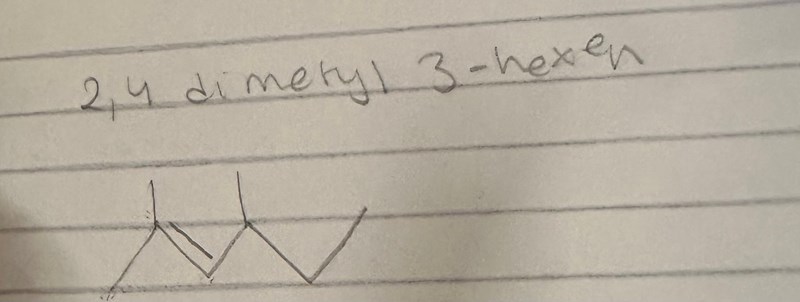 2,4 dimetyl 3-hexen